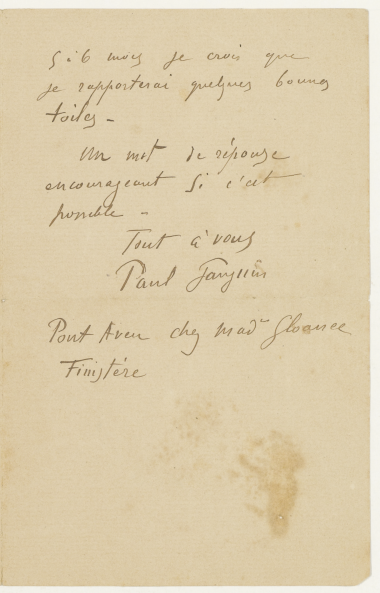 5 à 6 mois je crois que
je rapporterai quelques bonnes
toiles -
Un mot de réponse
encourageant si c'est
possible -
Tout à vous
Paul Gauguin
Pont Aven chez Mad^e Gloanec
Finistère